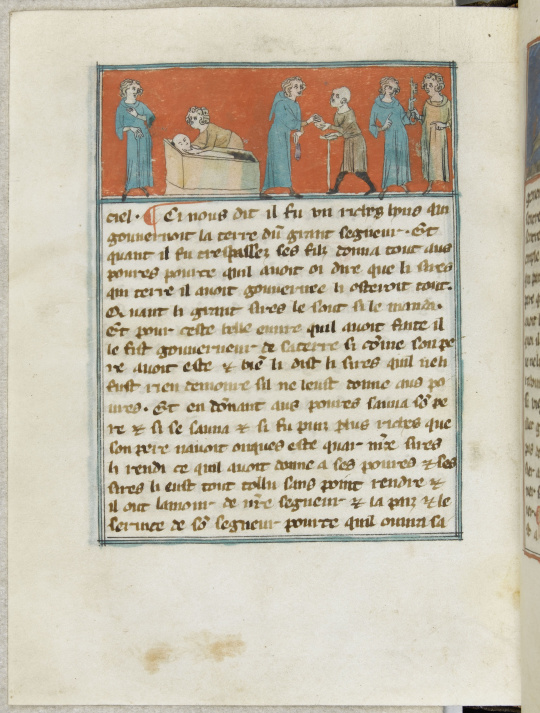 ciel. ¶ Ci nous dit il fu un riches hons qui
gouvernoit la terre dũ grant segneur. Et
quant il fu trespassez ses filz donna tout aus
poures pource quil avoit oi dire que li sires
qui terre il avoit gouvernee li osteroit tout.
Quant li grant sires le sout si le manda.
Et pour ceste belle euvre quil avoit faite il
le fist gouverneur de sa terre si cõme son pe
re avoit este & biẽ li dist li sires quil neli
fust rien demoure sil ne leust donne aus po
ures. Et en dõnant aus poures sauva sõ pe
re & si se sauva & si fu puis plus riches que
son pere navoit onques este quar nr̃e sires
li rendi ce quil avoit donne a ses poures & ses
sires li eust tout tollu sans point rendre &
il out lamour de nr̃e segneur & la paiz & le
service de sõ segneur pource quil ouvra sa